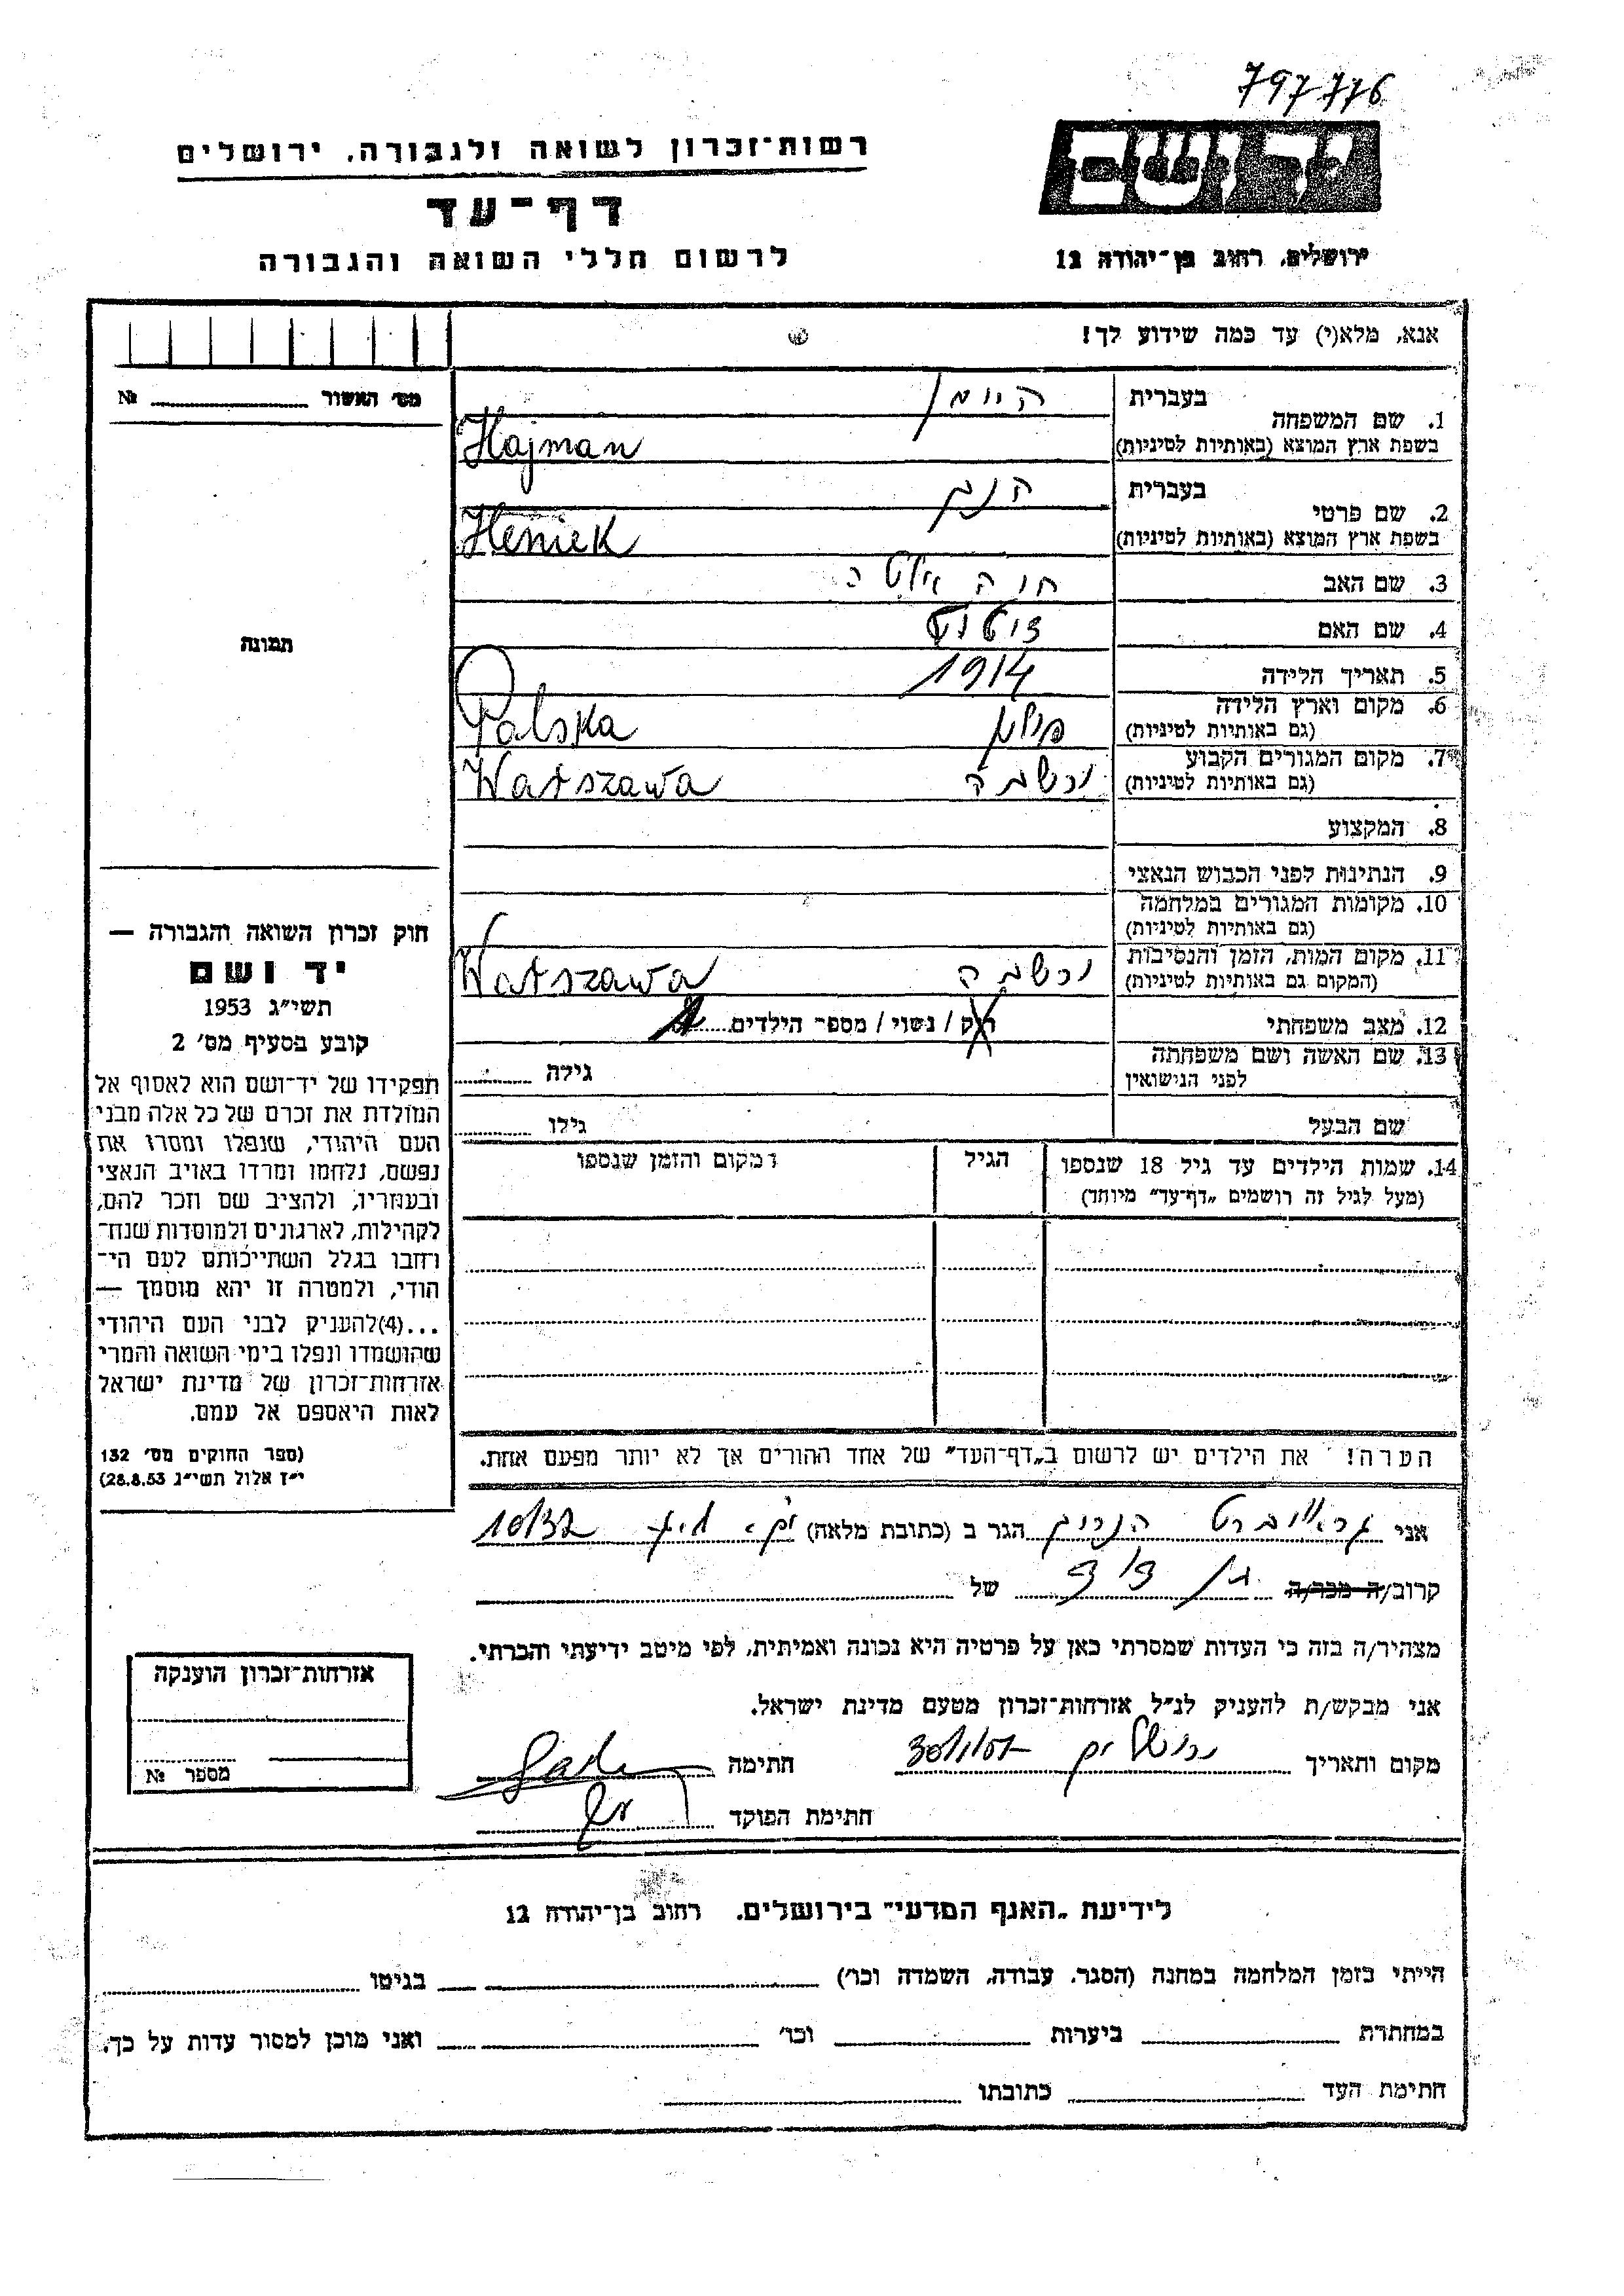 797776
רשות־זכרון לשואה ולגבורה, ירושלים
דף־עד
לרשום חללי השואה והגבורה
יד ושם
ירושלים, רחוב בן־יהודה 12
אנא, מלא(י) עד כמה שידוע לך!
מס׳ האשור № 
1. שם המשפחה
בעברית היימן
בשפת ארץ המוצא (באותיות לטיניות) Hajman
2. שם פרטי
בעברית
בשפת ארץ המוצא (באותיות לטיניות) Heniek
3. שם האב
4. שם האם
5. תאריך הלידה 1914
6. מקום וארץ הלידה פולין Polska
(גם באותיות לטיניות)
7. מקום המגורים הקבוע ורשבה Warszawa
(גם באותיות לטיניות)
8. המקצוע
9. הנתינות לפני הכבוש הנאצי
10. מקומות המגורים במלחמה
(גם באותיות לטיניות)
11. מקום המות, הזמן והנסיבות ורשבה Warszawa
(המקום גם באותיות לטיניות)
12. מצב משפחתי רוק / נשוי / מספר הילדים
13. שם האשה ושם משפחתה גילה
לפני הנישואין
שם הבעל גילו
14. שמות הילדים עד גיל 18 שנספו הגיל המקום והזמן שנספו
(מעל לגיל זה רושמים „דף־עד" מיוחד)
הערה! את הילדים יש לרשום ב„דף־העד" של אחד ההורים אך לא יותר מפעם אחת.
תמונה
חוק זכרון השואה והגבורה —
יד ושם
תשי״ג 1953
קובע בסעיף מס׳ 2
תפקידו של יד־ושם הוא לאסוף אל
המולדת את זכרם של כל אלה מבני
העם היהודי, שנפלו ומסרו את
נפשם, נלחמו ומרדו באויב הנאצי
ובעוזריו, ולהציב שם וזכר להם,
לקהילות, לארגונים ולמוסדות שנח־
רחבו בגלל השתייכותם לעם הי־
הודי, ולמטרה זו יהא מוסמך —
...(4)להעניק לבני העם היהודי
שהושמדו ונפלו בימי השואה והמרי
אזרחות־זכרון של מדינת ישראל
לאות היאספם אל עמם.
(ספר החוקים מס׳ 132
י״ז אלול תשי״ג 28.8.53)
אני הגר ב (כתובת מלאה) 10/32
קרוב/ה מכר/ה בן דוד של
מצהיר/ה בזה כי העדות שמסרתי כאן על פרטיה היא נכונה ואמיתית, לפי מיטב ידיעתי והכרתי.
אני מבקש/ת להעניק לנ״ל אזרחות־זכרון מטעם מדינת ישראל.
מקום ותאריך ירושלים חתימה
חתימת הפוקד
אזרחות־זכרון הוענקה
מספר №
לידיעת „האגף המדעי" בירושלים, רחוב בן־יהודה 12
הייתי בזמן המלחמה במחנה (הסגר, עבודה, השמדה וכו׳) בגיטו
במחתרת ביערות וכו׳ ואני מוכן למסור עדות על כך.
חתימת העד כתובתו